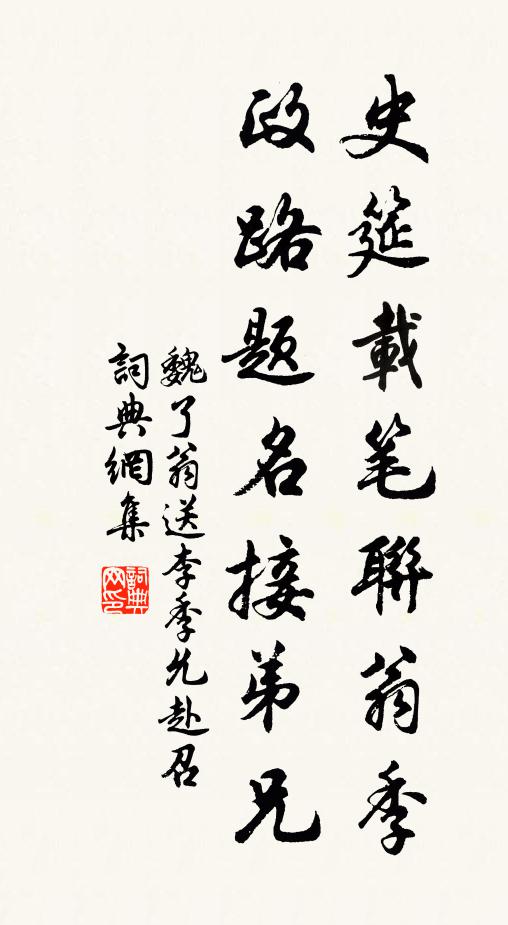 史筵載笔聯翁季
政路题名接弟兄
魏了翁送李季允赴召
詞典網集
詞典網印